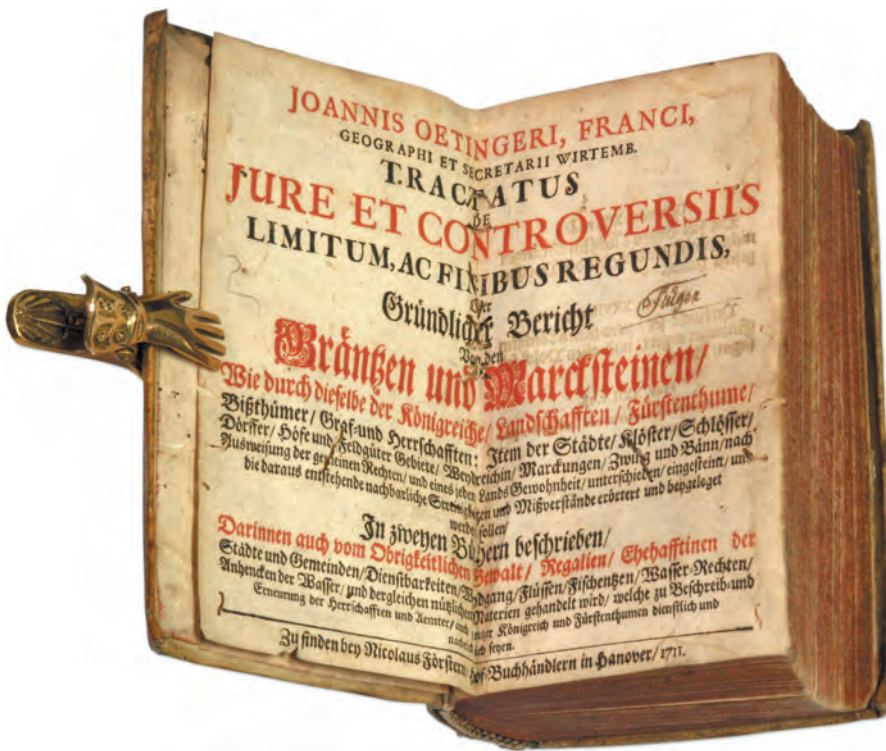 JOANNIS OETINGERI, FRANCI,
GEOGRAPHI ET SECRETARII WIRTEMB.
TRACTATUS
DE
JURE ET CONTROVERSIIS
LIMITUM, AC FINIBUS REGUNDIS,
Oder
Gründlicher Bericht
Von den
Gräntzen und Marcksteinen/
Wie durch dieselbe der Königreiche/ Landschafften/ Fürstenthume/
Bißthümer/ Graf- und Herrschafften: Item der Städte/ Klöster/ Schlösser/
Dörffer/ Höfe und Feldgüter Gebiete/ Marckungen/ Zwing und Bänn/ nach
Ausweisung der gemeinen Rechten/ und eines jeden Lands Gewohnheit/ unterschieden/ eingesteint/ und
die daraus entstehende nachbarliche und Mißverstände erörtert und beygeleget
werden sollen/
In zweyen Büchern beschrieben/
Darinnen auch vom Obrigkeitlichen Gewalt/ Regalien/ Ehehafftinen der
Städte und Gemeinden/ Dienstbarkeiten/ Flüssen/ Fischentzen/ Wasser-Rechten/
Anhencken der Wasser/ und dergleichen nützlichen Materien gehandelt wird/ welche zu Beschreib- und
Erneurung der Herrschafften und Aemter/ auch Königreich und Fürstenthumen dienstlich und
seyen.
Zu finden bey Nicolaus Förstern/ Hof-Buchhändlern in Hanover/ 1711.